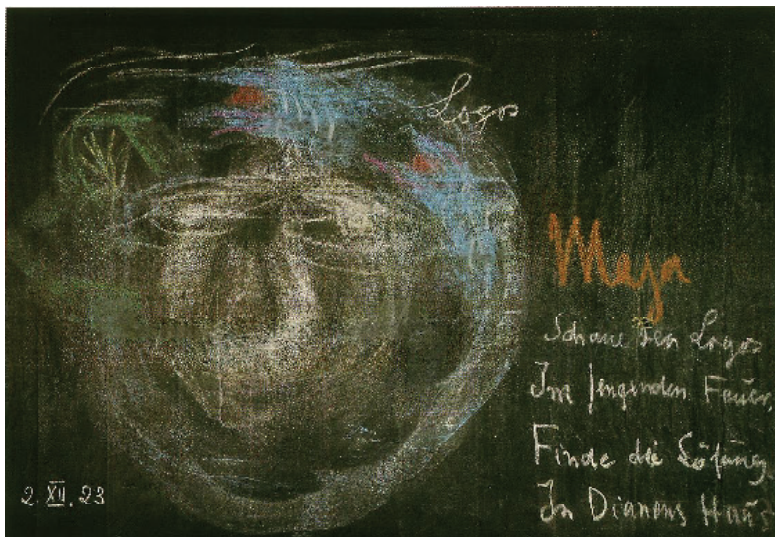 Logos
Maja
Schaue den Logos
Im sengenden Feuer,
Finde die Lösung
In Dianens Haus
2. XII. 23